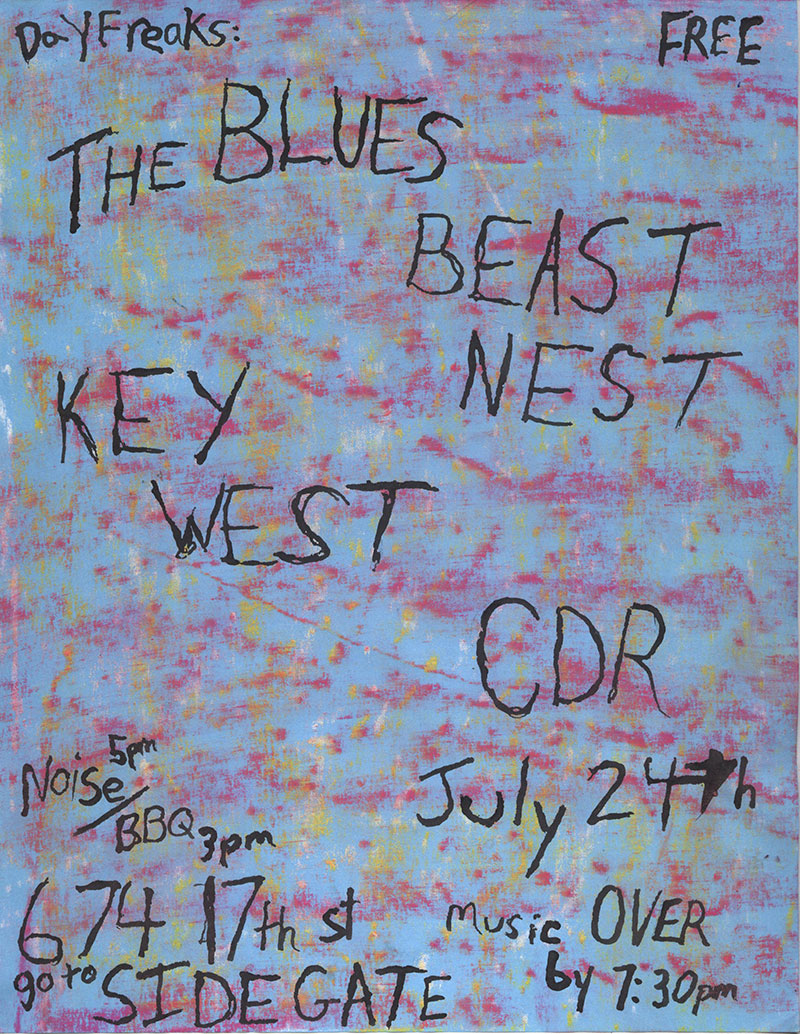 DaY Freaks:
FREE
THE BLUES
BEAST
NEST
KEY
WEST
CDR
Noise 5pm
/
BBQ 3pm
July 24th
674 17th st
go to SIDE GATE
music OVER
by 7:30pm